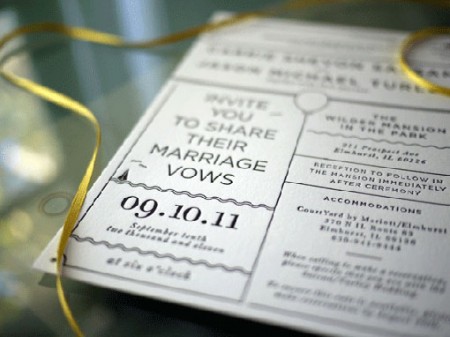 MICHAEL
INVITE
YOU
TO SHARE
THEIR
MARRIAGE
VOWS
09.10.11
September tenth
two thousand and eleven
at six o'clock
THE
WILDER MANSION
IN THE PARK
211 Prospect Ave
Elmhurst, IL 60126
RECEPTION TO FOLLOW IN
THE MANSION IMMEDIATELY
AFTER CEREMONY
ACCOMMODATIONS
CourtYard by Mariott/Elmhurst
370 N IL Route 83
Elmhurst, IL
When calling to make a reservation,
please specify that you are with the
Wedding